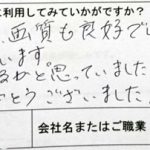 に利用してみていかがですか？
画質も良好でし
います。
るかと思っていました
どうございました
会社名またはご職業